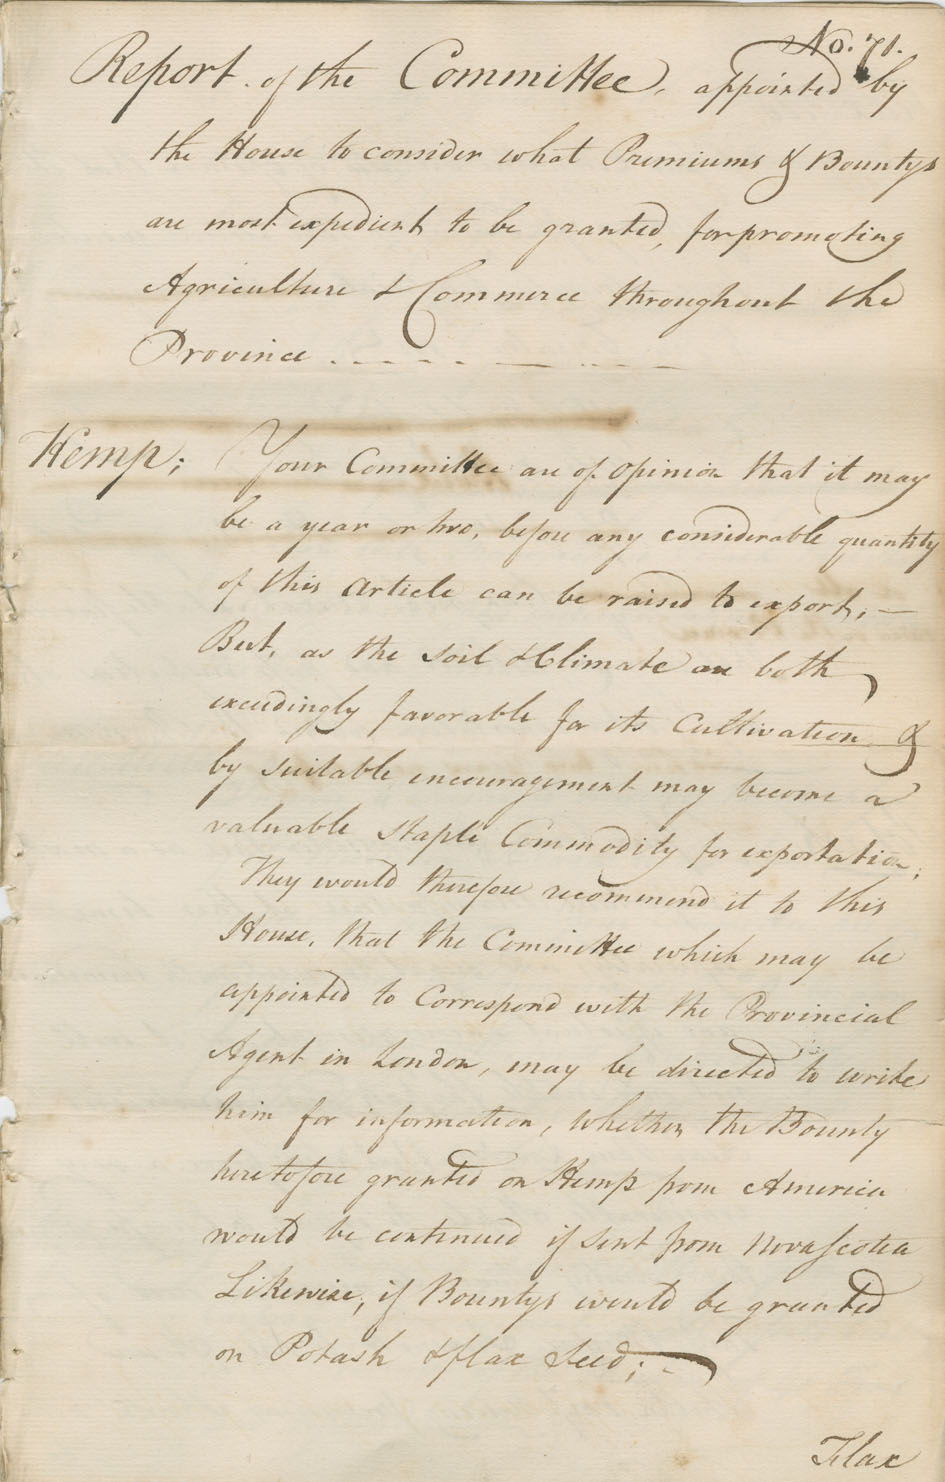 No. 71.
Report of the Committee, appointed by
the House to consider what Premiums & Bountys
are most expedient to be granted, for promoting
Agriculture & Commerce throughout the
Province
Hemp; Your Committee are of opinion that it may
be a year or two, before any considerable quantity
of this Article can be raised to export, —
But, as the soil & Climate are both
exceedingly favorable for its Cultivation &
by suitable encouragement may become a
valuable staple Commodity for exportation;
They would therefore recommend it to this
House, that the Committee which may be
appointed to Correspond with the Provincial
Agent in London, may be directed to write
him for information, whether the Bounty
heretofore granted on Hemp from America
would be continued if sent from Nova Scotia
Likewise, if Bountys would be granted
on Potash & flax Seed; —
Flax